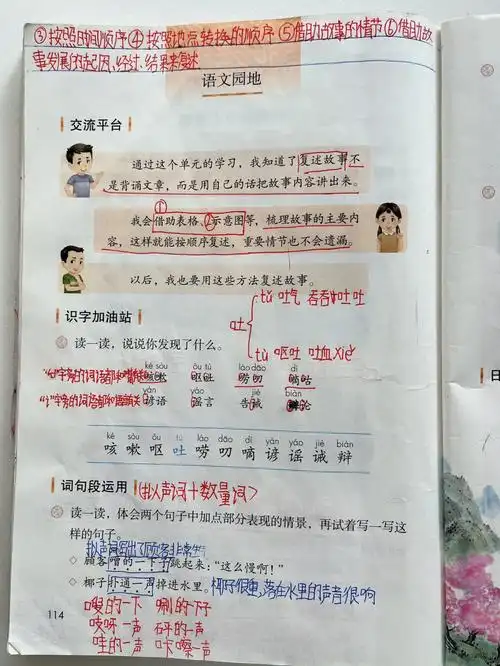 ③按照时间顺序④按照地点转换的顺序⑤借助故事的情节⑥借助故
事发展的起因、经过、结果来复述
语文园地
交流平台
通过这个单元的学习，我知道了复述故事不
是背诵文章，而是用自己的话把故事内容讲出来。
① ②
我会借助表格、示意图等，梳理故事的主要内
容，这样就能按顺序复述，重要情节也不会遗漏。
以后，我也要用这些方法复述故事。
识字加油站
吐
tǔ 吐气 吞吞吐吐
tù 呕吐 吐血 xiě
读一读，说说你发现了什么。
ké sòu ǒu tù láo dao dí
咳嗽 呕吐 唠叨 嘀咕
yàn yáo jiè biàn
谚语 谣言 告诫 辩论
ké sòu ǒu tù láo dāo dí yàn yáo jiè biàn
咳嗽呕吐唠叨嘀谚谣诫辩
词句段运用
(拟声词+数量词)
读一读，体会两个句子中加点部分表现的情景，再试着写一写这
样的句子。
顾客噌的一下子跳起来：“这么慢啊！”
椰子扑通一声掉进水里。
椰子很重，落在水里的声音很响
114
嗖的一下 唰的一下子
吱呀一声 砰的一声
哇的一声 咔嚓一声
日